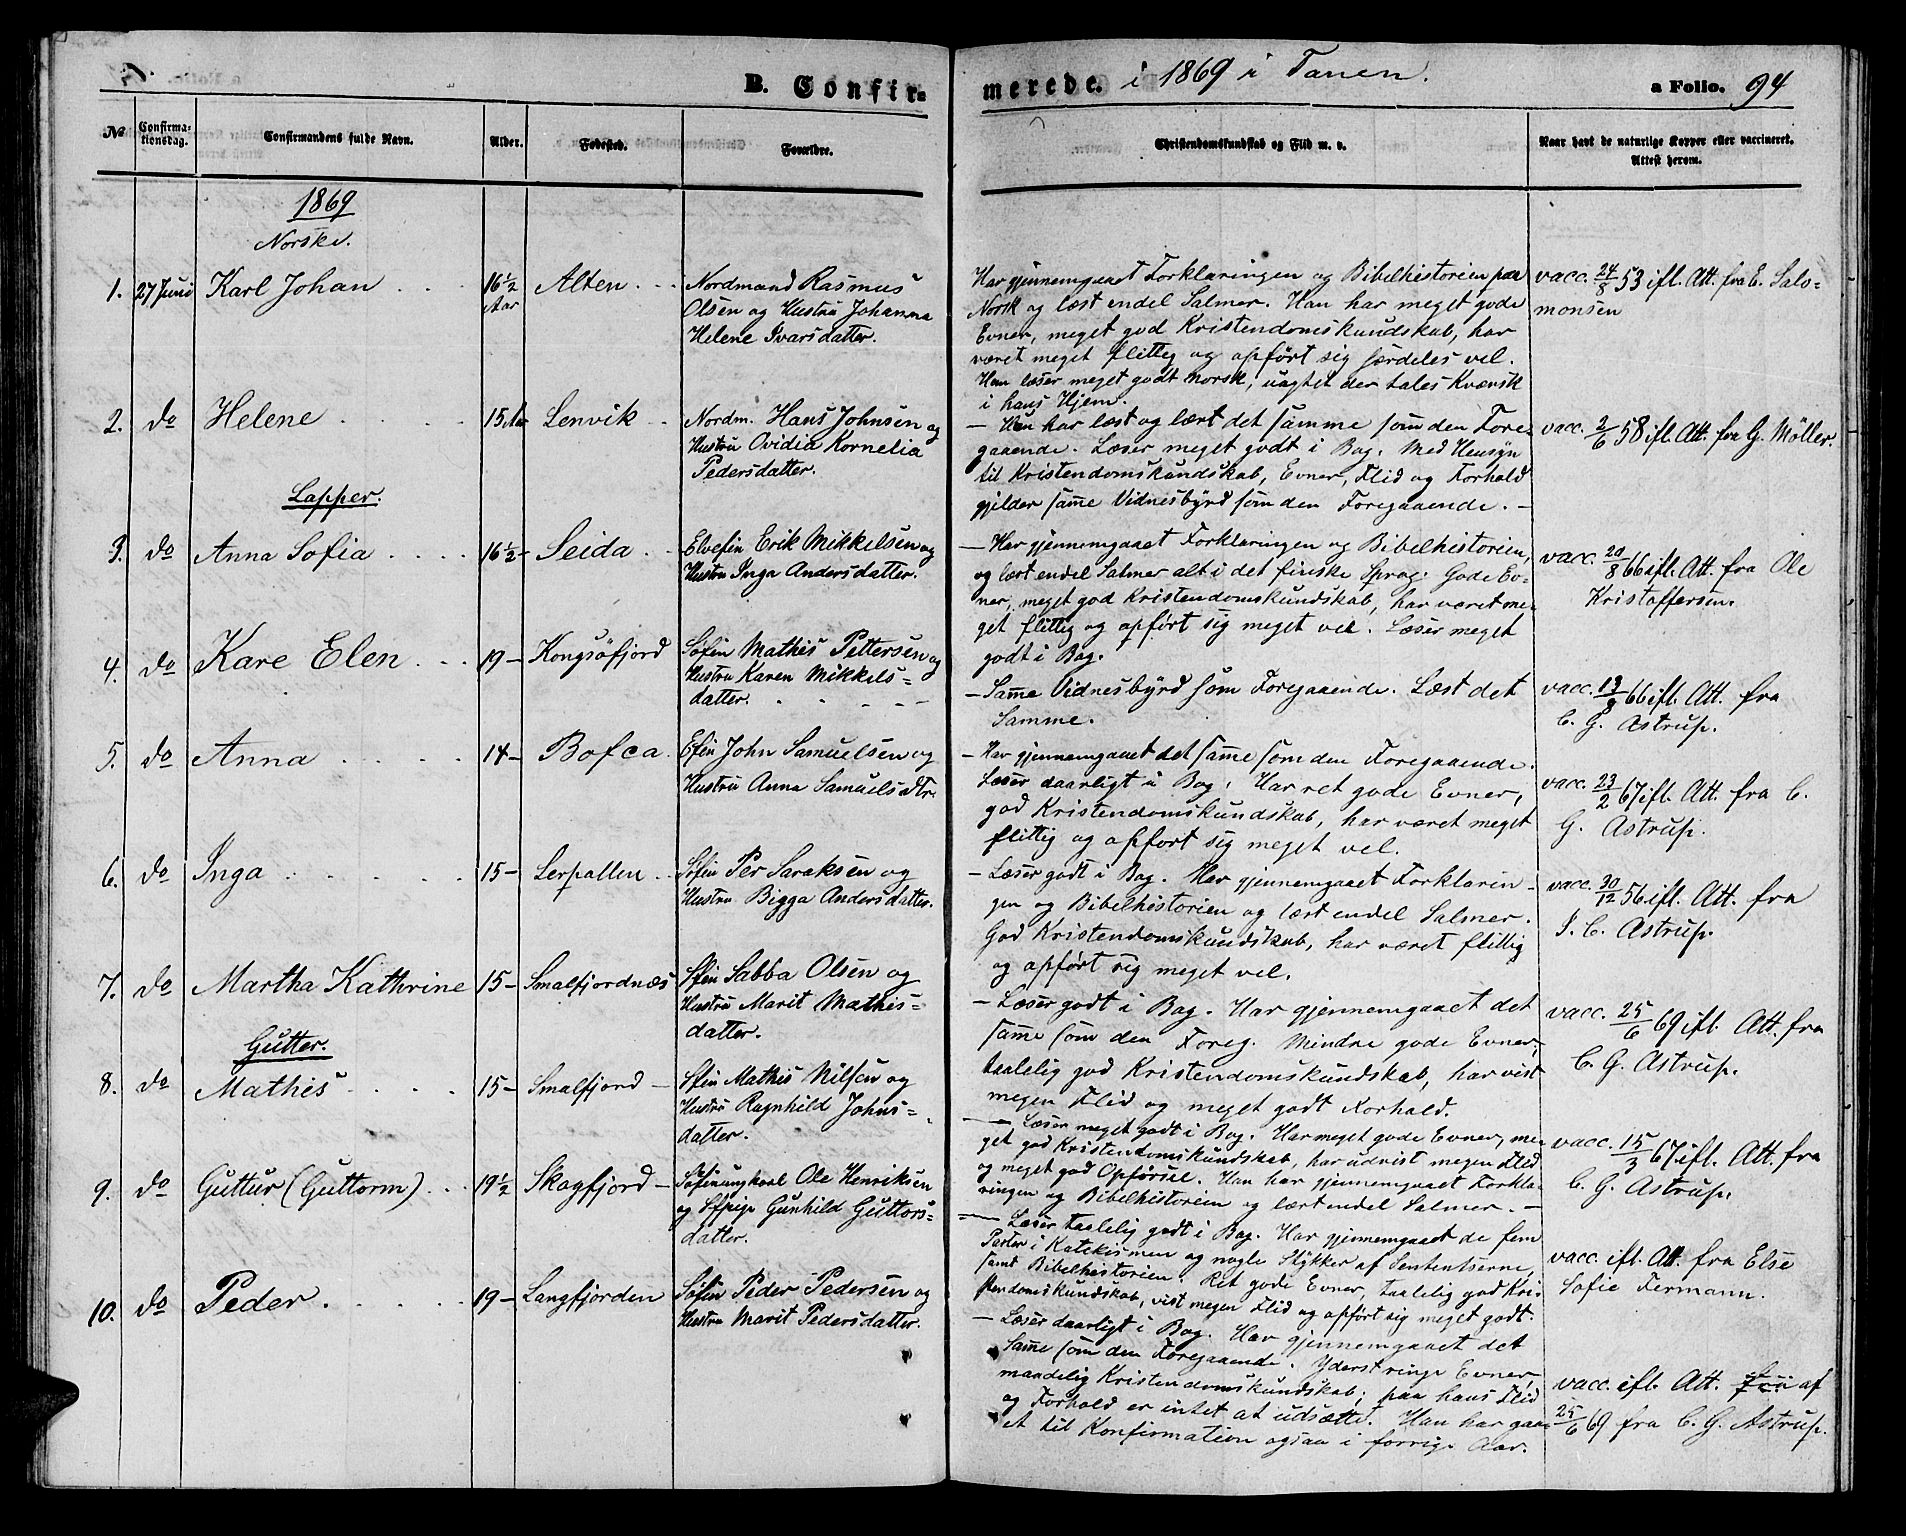 B. Confir=
merede. i 1869 i Tanen.
a Folio. 94
No
Confirma-
tionsdag.
Confirmandens fulde Navn.
Alder.
Fødested.
Forældre.
Christendomskundskab og Flid m. v.
Naar havt de naturlige Kopper eller vaccineret.
Attest herom.
1869
Norske.
1. 27 Juni Karl Johan 16½ Aar Alten
Nordmand Rasmus
Olsen og Hustru Johanna
Helene Ivarsdatter.
Har gjennemgaaet Forklaringen og Bibelhistorien paa
Norsk og læst endel Salmer. Han har meget gode
Evner, meget god Kristendomskundskab, har
været meget flittig og opført sig særdeles vel.
Han læser meget godt norsk, uagtet der tales Kvænsk
i hans Hjem.
vacc. 24/8 53 ifl. Att. fra E. Salo-
monsen
2. do Helene 15 Aar Lenvik
Nordm. Hans Johnsen og
Hustru Ovidia Kornelia
Pedersdatter.
— Hun har læst og lært det samme som den Fore-
gaaende. Læser meget godt i Bog. Med Hensyn
til Kristendomskundskab, Evner, Flid og Forhold
gjelder samme Vidnesbyrd som den Foregaaende. —
vacc. 2/6 58 ifl. Att. fra G. Møller.
Lapper.
3. do Anna Sofia 16½ — Seida
Elvefin Erik Mikkelsen og
Hustru Inga Andersdatter.
— Har gjennemgaaet Forklaringen og Bibelhistorien,
og lært endel Salmer alt i det finske Sprog. Gode Ev-
ner, meget god Kristendomskundskab, har været me-
get flittig og opført sig meget vel. Læser meget
godt i Bog.
vacc. 20/8 66 ifl. Att. fra Ole
Kristoffersen.
4. do Kare Elen 19 — Kongsöfjord
Søfin Mathis Pettersen og
Hustru Karen Mikkels=
datter.
— Samme Vidnesbyrd som Foregaaende. Læst det
Samme.
vacc. 13/8 66 ifl. Att. fra
C. G. Astrup.
5. do Anna 14 — Bofca
Efin John Samuelsen og
Hustru Anna Samuelsdtr.
— Har gjennemgaaet det samme som den Foregaaende.
Læser daarligt i Bog. Har ret gode Evner,
god Kristendomskundskab, har været meget
flittig og opført sig meget vel.
vacc. 23/2 67 ifl. Att. fra C.
G. Astrup.
6. do Inga 15 — Lerpollen
Søfin Per Saraksen og
Hustru Bigga Andersdatter.
— Læser godt i Bog. Har gjennemgaaet Forklarin-
gen og Bibelhistorien og lært endel Salmer.
God Kristendomskundskab, har været flittig
og opført sig meget vel.
vacc. 30/12 56 ifl. Att. fra
I. C. Astrup.
7. do Martha Kathrine 15 — Smalfjordnæs
Sfin Sabba Olsen og
Hustru Marit Mathis=
datter.
— Læser godt i Bog. Har gjennemgaaet det
samme som den Foreg. Mindre gode Evner,
taalelig god Kristendomskundskab, har vist
megen Flid og meget godt Forhold.
vacc. 25/6 69 ifl. Att. fra
C. G. Astrup.
Gutter.
8. do Mathis 15 — Smalfjord —
Sfin Mathis Nilsen og
Hustru Ragnhild Johns=
datter.
— Læser meget godt i Bog. Har meget gode Evner, me-
get god Kristendomskundskab, har udvist megen Flid
og meget god Opførsel. Han har gjennemgaaet Forkla-
ringen og Bibelhistorien og lært endel Salmer. —
vacc. 15/3 67 ifl. Att. fra
C. G. Astrup.
9. do Guttur (Guttorm) 19½ Skogfjord —
Søfinungkarl Ole Henriksen
og Sfpige Gunhild Guttors=
datter.
— Læser taalelig godt i Bog. Har gjennemgaaet de fem
Parter i Katekismen og nogle Stykker af Sententserne,
samt Bibelhistorien. Ret gode Evner, taalelig god Kris
tendomskundskab, vist megen Flid og opført sig meget godt.
vacc. ifl. Att. fra Else
Sofie Fermann.
10. do Peder 19 — Langfjorden
Søfin Peder Pedersen og
Hustru Marit Pedersdatter.
— Læser daarligt i Bog. Har gjennemgaaet det
Samme som den Foregaaende. Yderst ringe Evner,
maadelig Kristendomskundskab; paa hans Flid
og Forhold er intet at udsætte. Han har gaa-
et til Konfirmation ogsaa i forrige Aar.
vacc. ifl. Att. fra af
25/6 69 fra C. G. Astrup.